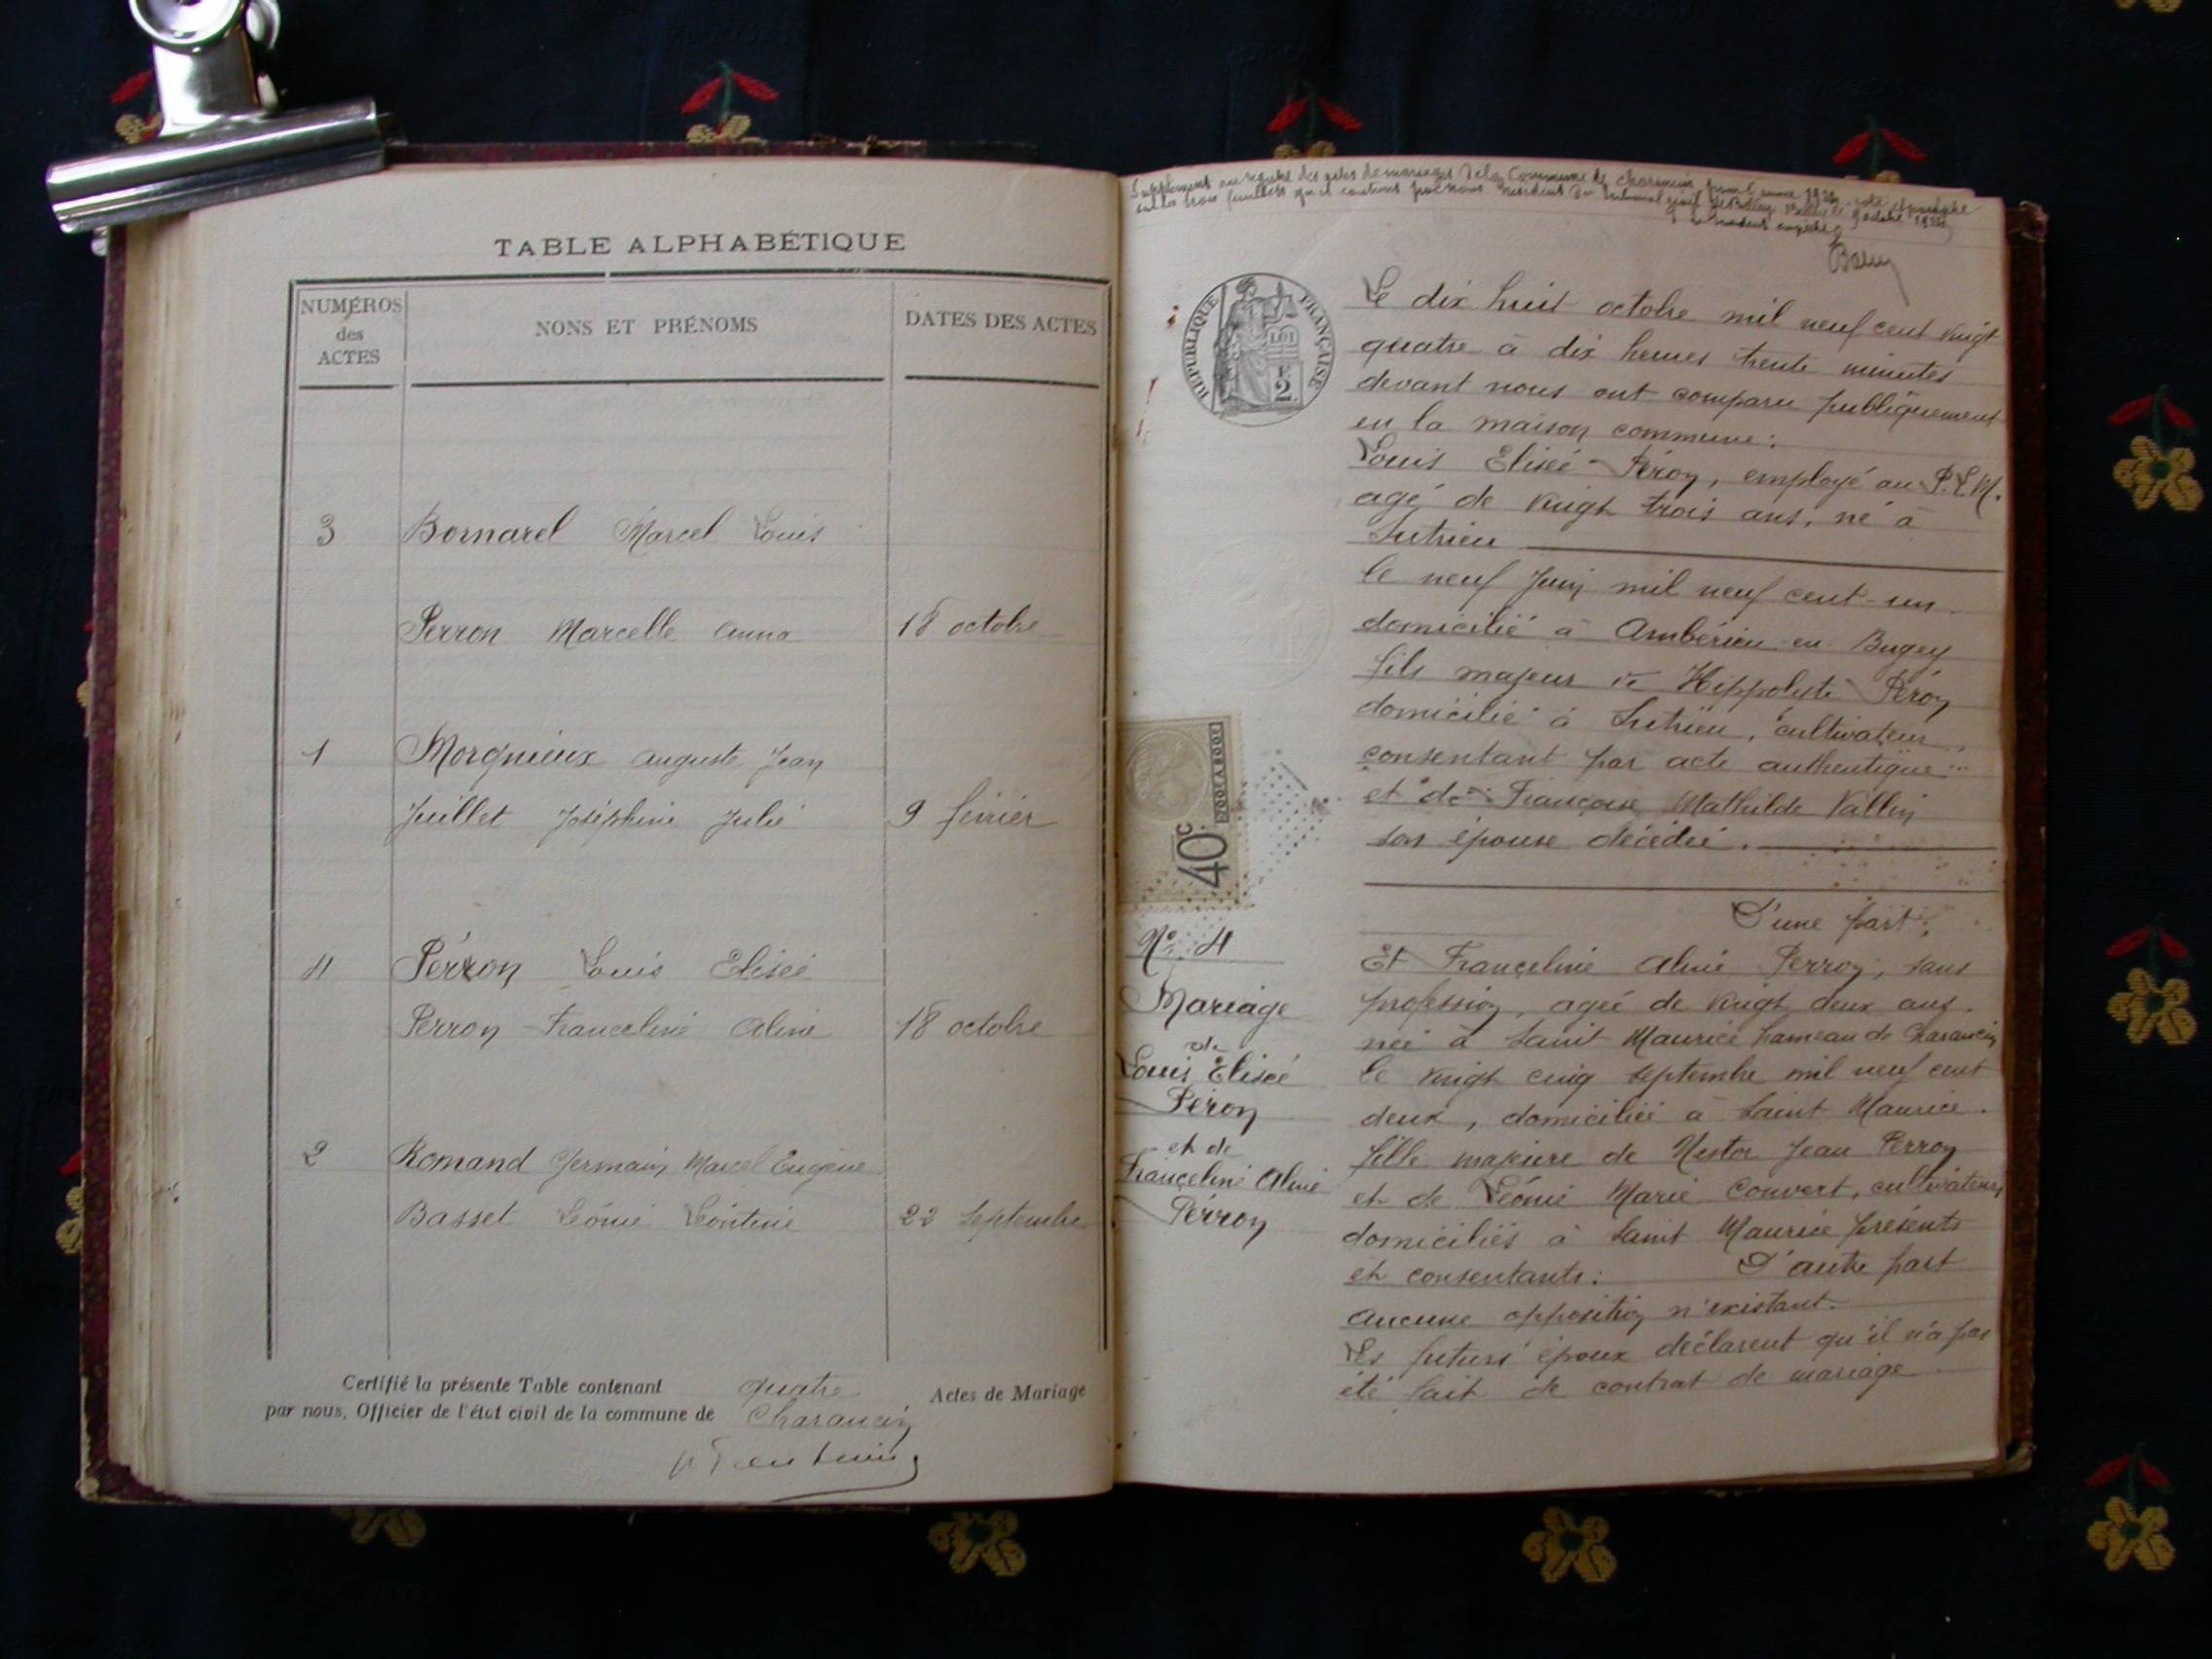 TABLE ALPHABÉTIQUE
NUMÉROS des ACTES
NONS ET PRÉNOMS
DATES DES ACTES
3 Bornarel Marcel Louis
Perron Marcelle Anna 18 octobre
1 Morgnieux Auguste Jean
Juillet Joséphine Julie 9 février
4 Perron Louis Elisée
Perron Franceline Aline 18 octobre
2 Romand Germain Marcel Eugène
Basset Léonie Léontine 22 Septembre
Certifié la présente Table contenant quatre Actes de Mariage
par nous, Officier de l'état civil de la commune de Charancin
Supplément au registre des actes de mariages de la Commune de Charancin pour l'année 1924, coté et paraphé
sur les trois feuillets qu'il contient par nous Président du tribunal civil de Belley
RÉPUBLIQUE FRANÇAISE
LOI
2
Le dix huit octobre mil neuf cent vingt
quatre à dix heures trente minutes
devant nous ont comparu publiquement
en la maison commune :
Louis Elisée Péron, employé au P.L.M.
agé de vingt trois ans, né à
Sutrieu
le neuf Juin mil neuf cent un
domicilié à Ambérieu en Bugey
fils majeur de Hippolyte Péron
domicilié à Sutrieu, cultivateur,
consentant par acte authentique
et de Françoise Mathilde Vallin
son épouse décédée.
D'une part,
Et Franceline Aline Perron, sans
profession, agée de vingt deux ans.
née à Saint Maurice hameau de Charancin
le vingt cinq septembre mil neuf cent
deux, domiciliée à Saint Maurice.
fille majeure de Nestor Jean Perron
et de Léonie Marie Convert, cultivateurs
domiciliés à Saint Maurice présents
et consentants : D'autre part
Aucune opposition n'existant.
Les futurs époux déclarent qu'il n'a pas
été fait de contrat de mariage
40c
N° 4
Mariage
de
Louis Elisée
Péron
et de
Franceline Aline
Perron